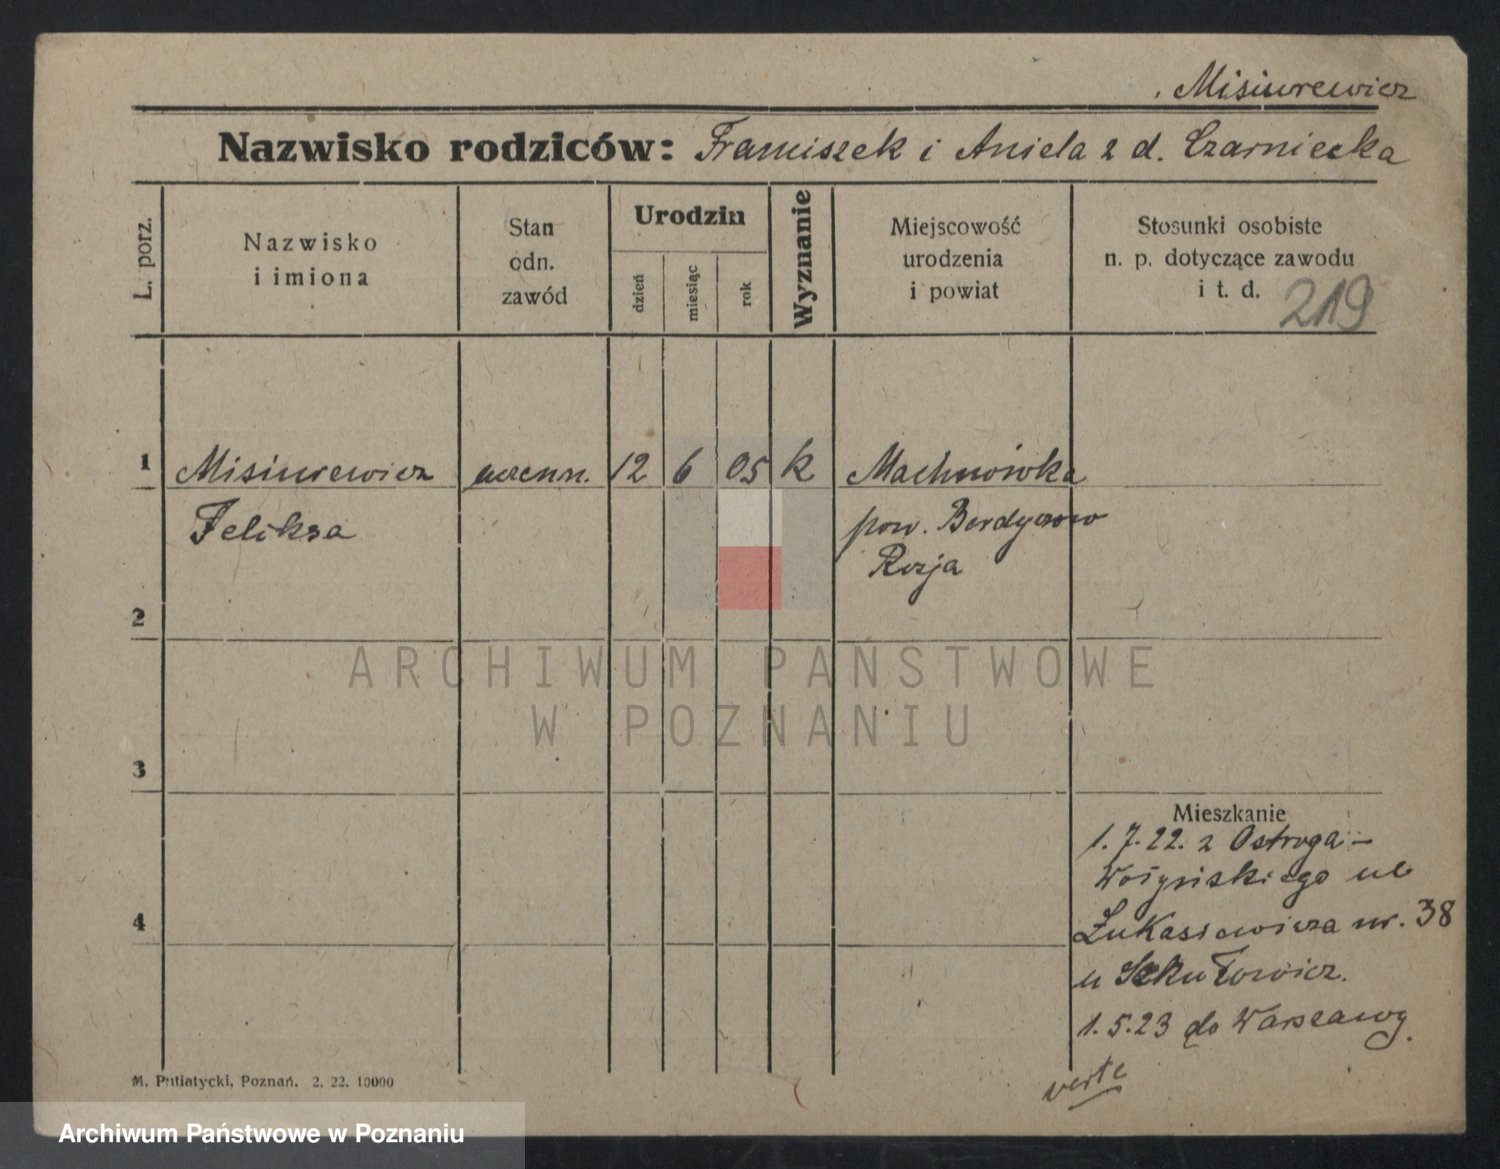 Misiurewicz
Nazwisko rodziców: Franciszek i Aniela z d. Czarniecka
L. porz.
Nazwisko
i imiona
Stan
odn.
zawód
Urodzin
dzień
miesiąc
rok
Wyznanie
Miejscowość
urodzenia
i powiat
Stosunki osobiste
n. p. dotyczące zawodu
i t. d.
219
1 Misiurewicz uczenn. 12 6 05 k Machnówka
Feliksa pow. Berdyczow
Rosja
2
ARCHIWUM PAŃSTWOWE
W POZNANIU
3
Mieszkanie
1.7.22. z Ostroga-
Wołyńskiego ul.
4
Łukasiewicza nr. 38
u Szkułowicz.
1.5.23 do Warszawy.
verte
M. Putiatycki, Poznań. 2. 22. 10000
Archiwum Państwowe w Poznaniu